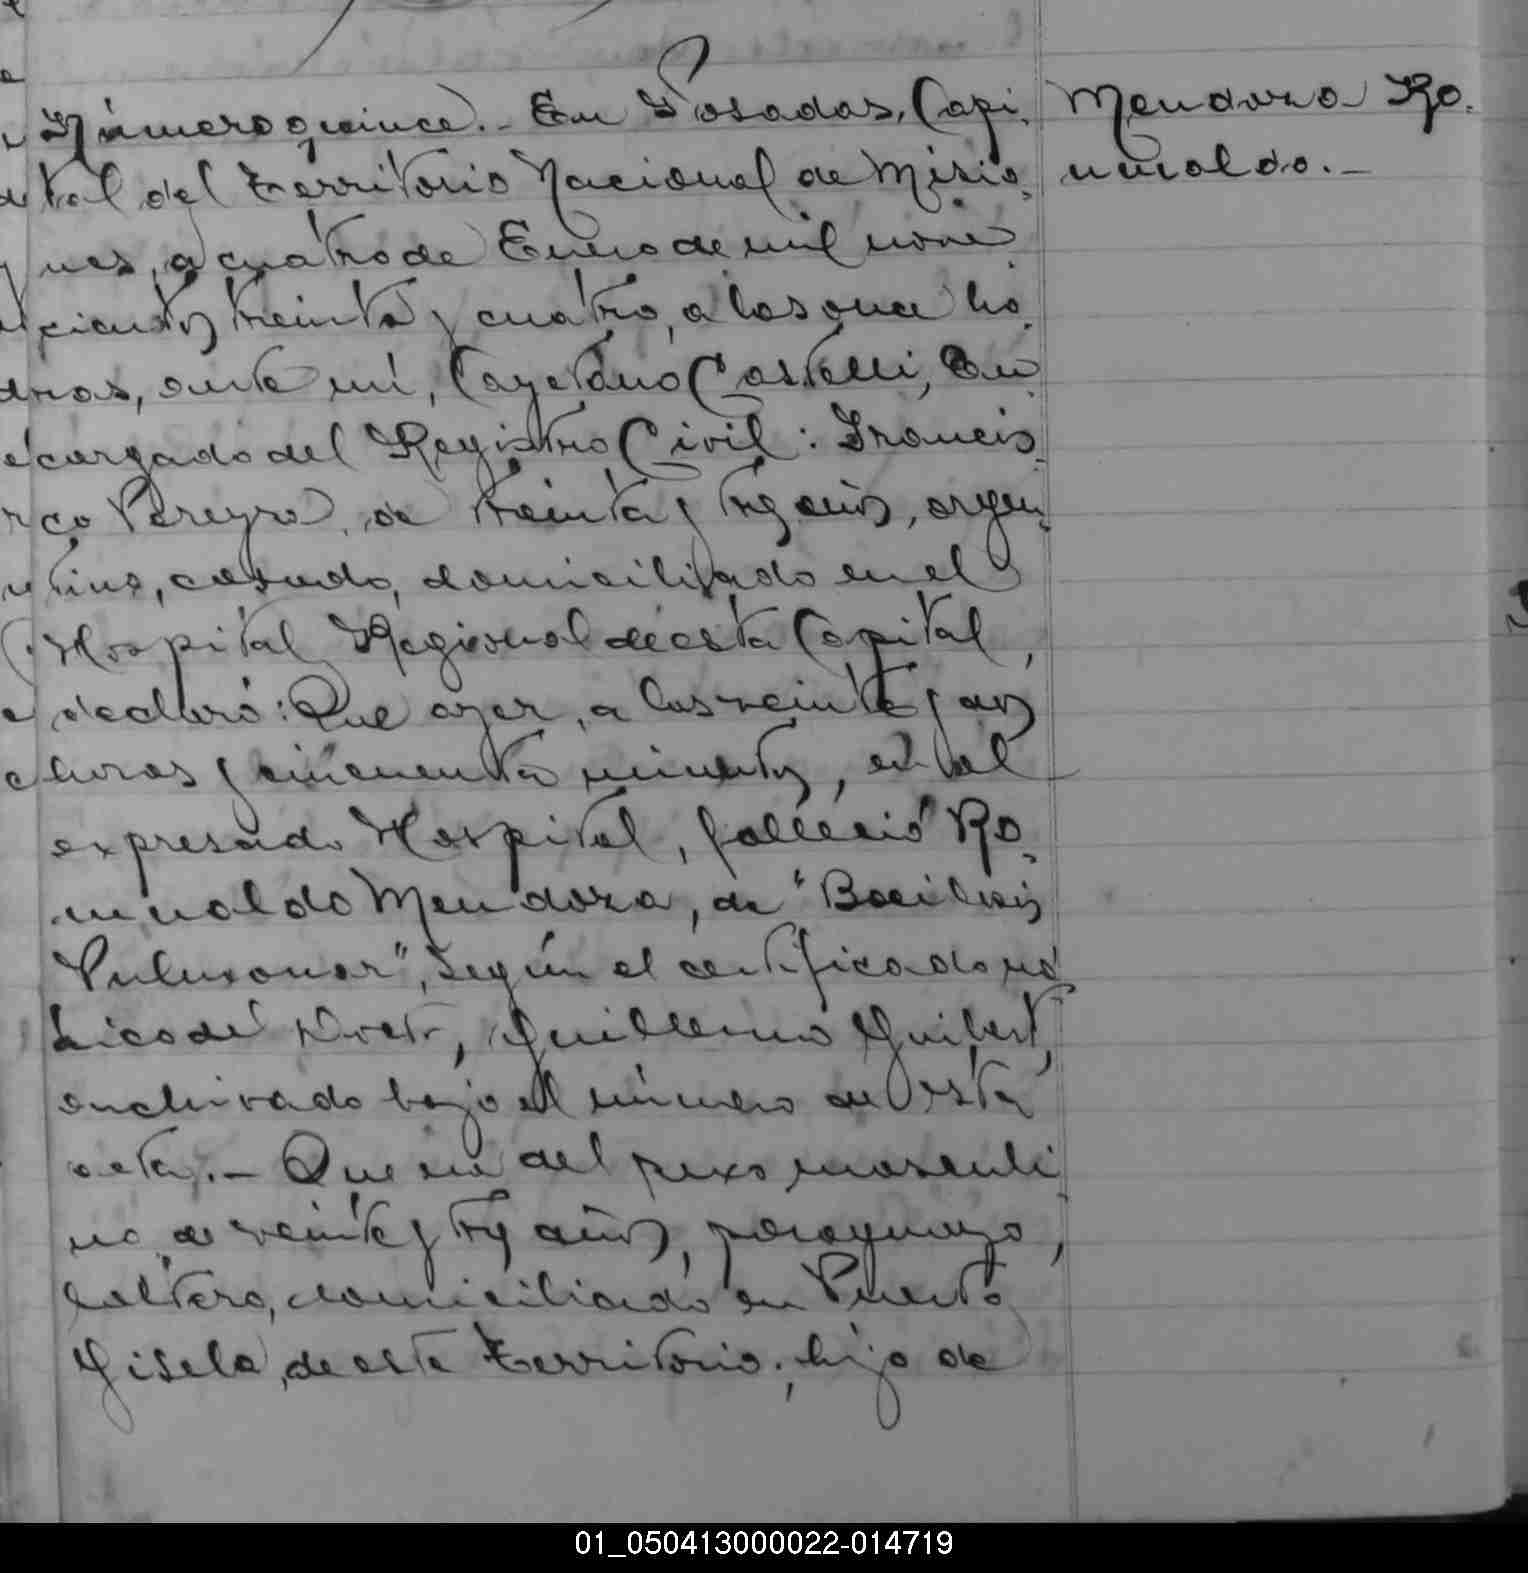 Número quince.- En Posadas, Capi- Mendoza Ro-
tal del Territorio Nacional de Misio- mualdo.-
nes, a cuatro de Enero de mil nove-
cientos treinta y cuatro, a las once ho-
ras, ante mí, Cayetano Castelli, En-
cargado del Registro Civil: Francis-
co Pereyra, de treinta y tres años, argen-
tino, casado, domiciliado en el
Hospital Regional de esta Capital,
declaró: Que ayer, a las veinte y dos
horas y cincuenta minutos, en el
expresado Hospital, falleció Ro-
mualdo Mendoza, de "Bacilosis
Pulmonar", según el certificado mé-
dico del Doctor, Guillermo Guibert,
archivado bajo el número de esta
acta.- Que era del sexo masculi-
no, de veinte y tres años, paraguayo,
soltero, domiciliado en Puerto
Gisela, de este Territorio; hijo de
01_050413000022-014719